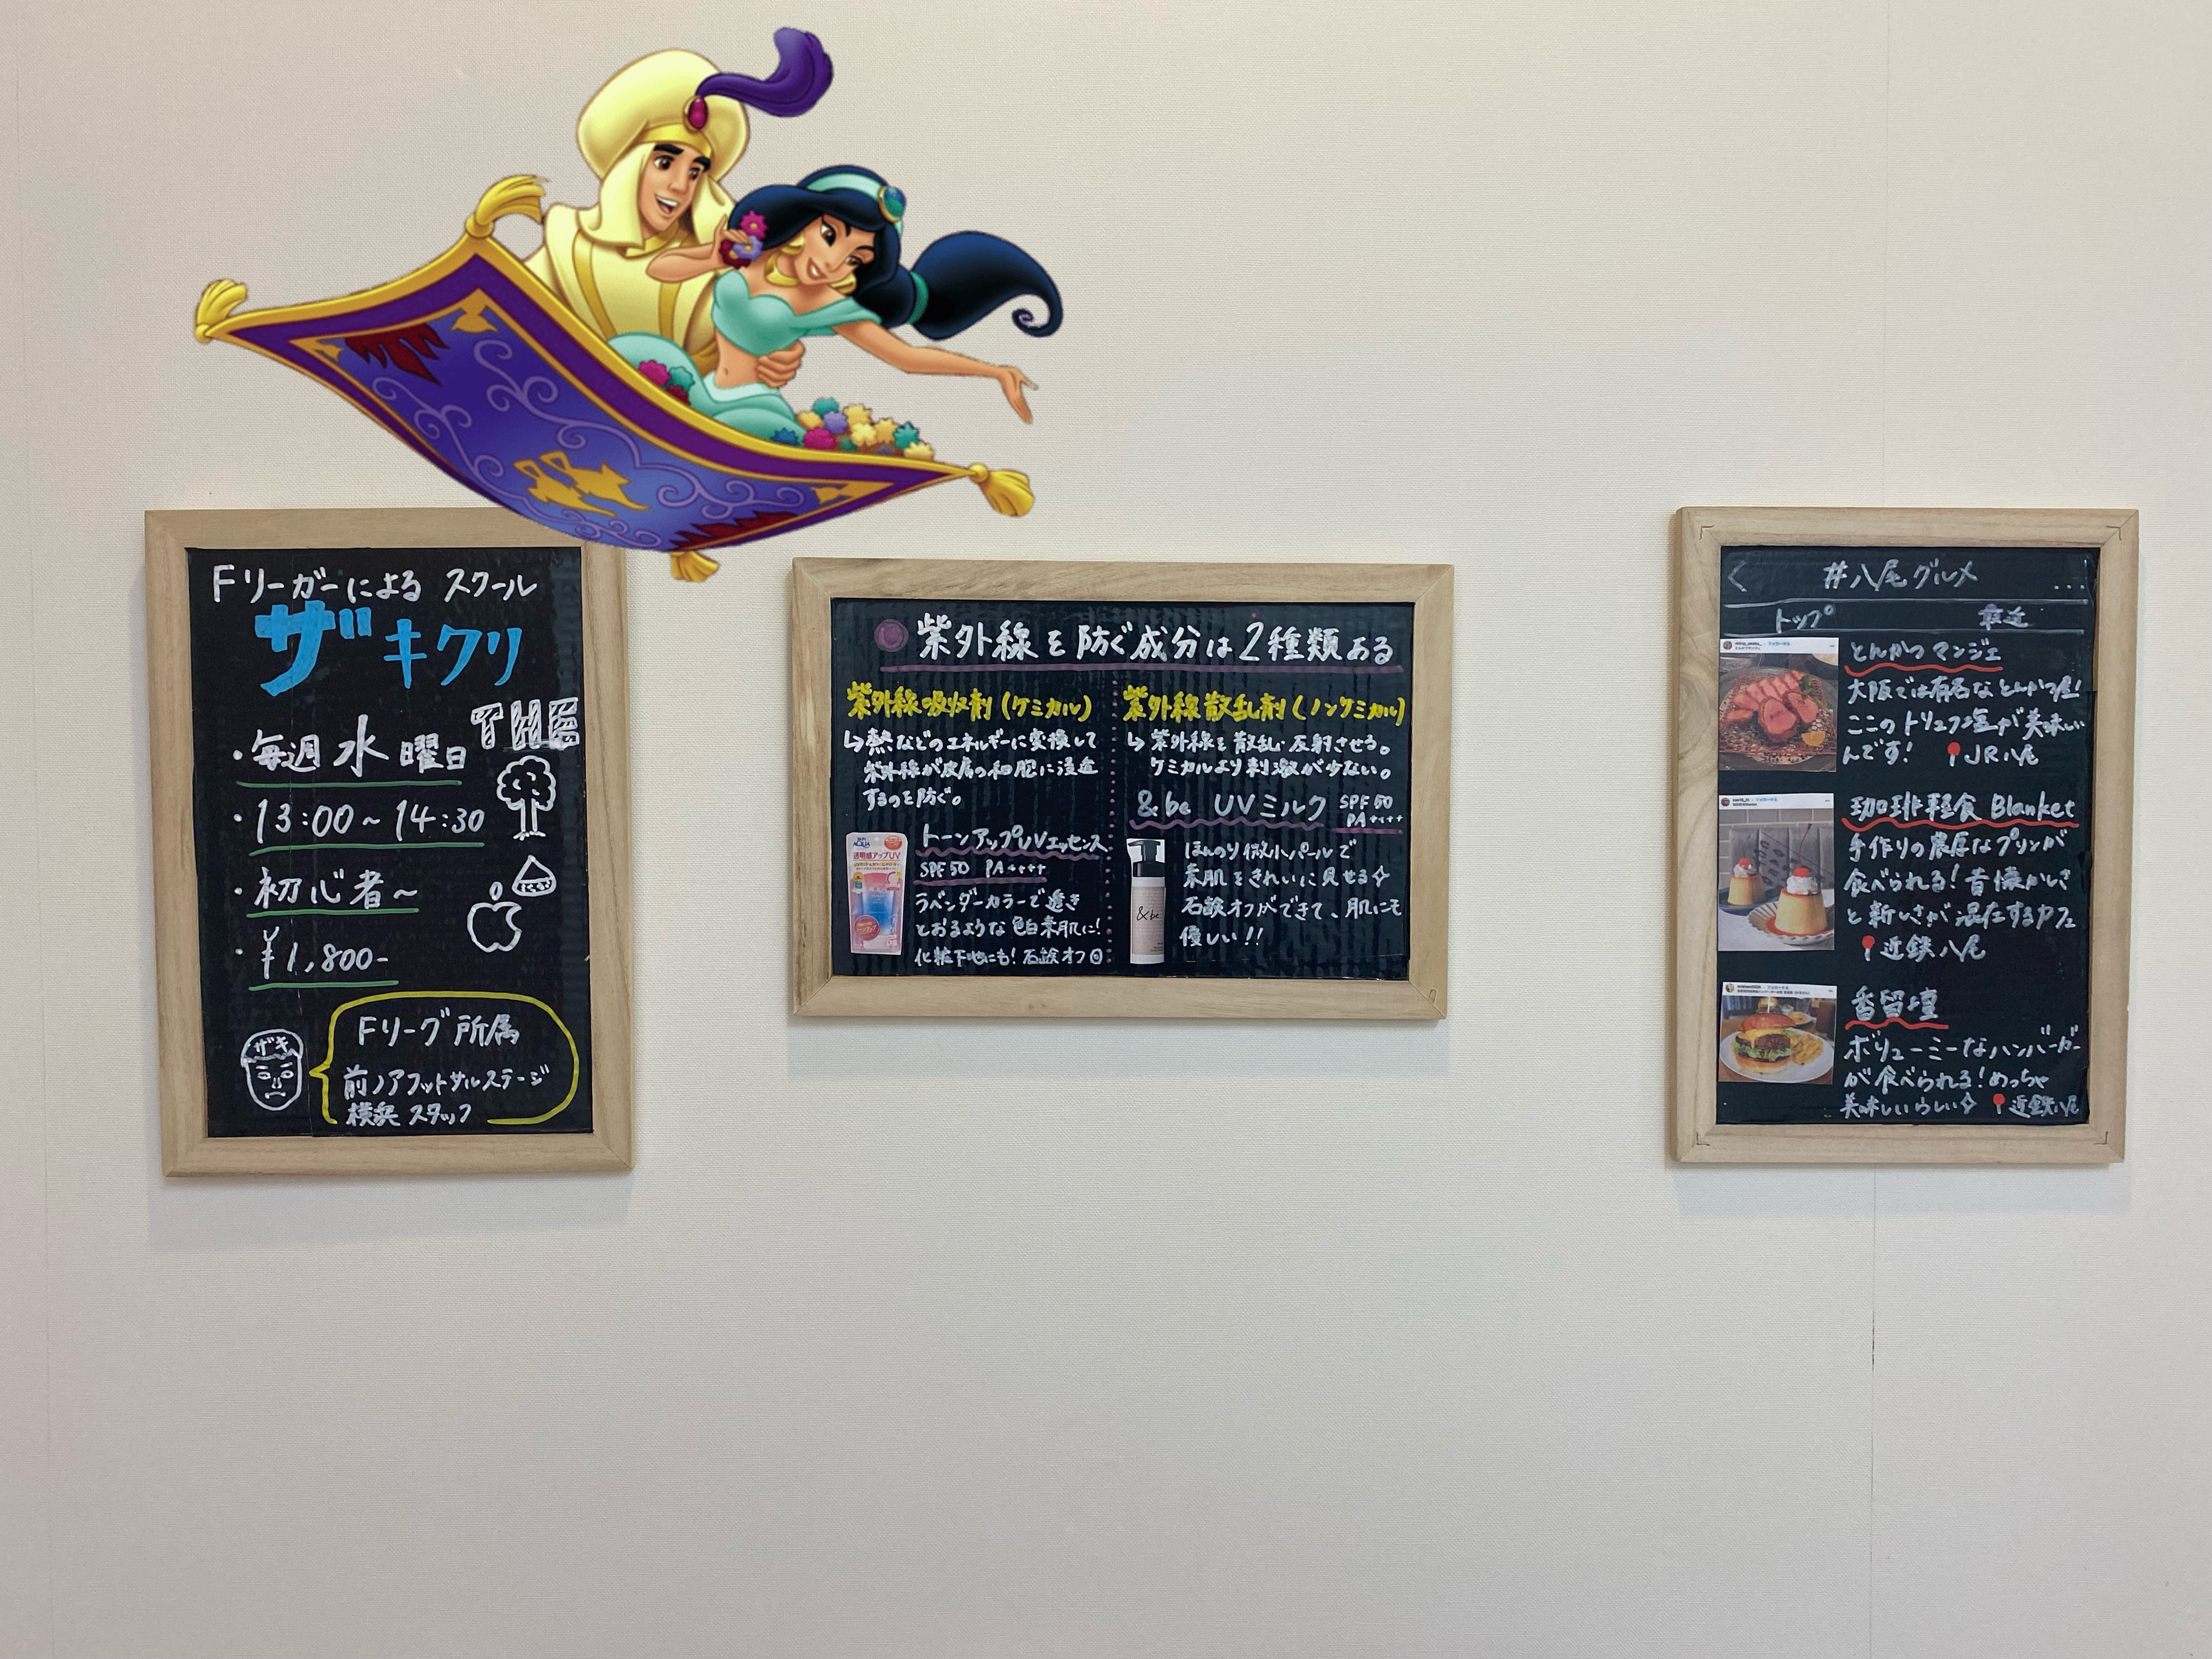 Fリーガーによる スクール
ザキクリ
THE
・毎週水曜日
・13:00～14:30
・初心者～
・¥1,800-
ザキ
Fリーグ所属
前ノアフットサルステージ
横浜スタッフ
紫外線を防ぐ成分は2種類ある
紫外線吸収剤(ケミカル)
↳熱などのエネルギーに変換して
紫外線が皮膚の細胞に浸透
するのを防ぐ。
トーンアップUVエッセンス
SPF50 PA++++
ラベンダーカラーで透き
とおるような色白素肌に!
化粧下地にも!石鹸オフ◎
AQUA
透明感アップUV
紫外線散乱剤(ノンケミカル)
↳紫外線を散乱・反射させる。
ケミカルより刺激が少ない。
&be UVミルク SPF50
PA++++
ほんのり微小パールで
素肌をきれいに見せる✧
石鹸オフができて、肌にも
優しい!!
&be
< #八尾グルメ ...
トップ 最近
とんかつマンジェ
大阪では有名なとんかつ屋!
ここのトリュフ塩が美味しい
んです! 📍JR八尾
珈琲軽食 Blanket
手作りの濃厚なプリンが
食べられる!昔懐かしさ
と新しさが混在するカフェ
📍近鉄八尾
香留壇
ボリューミーなハンバーガー
が食べられる!めっちゃ
美味しいらしい✧ 📍近鉄八尾